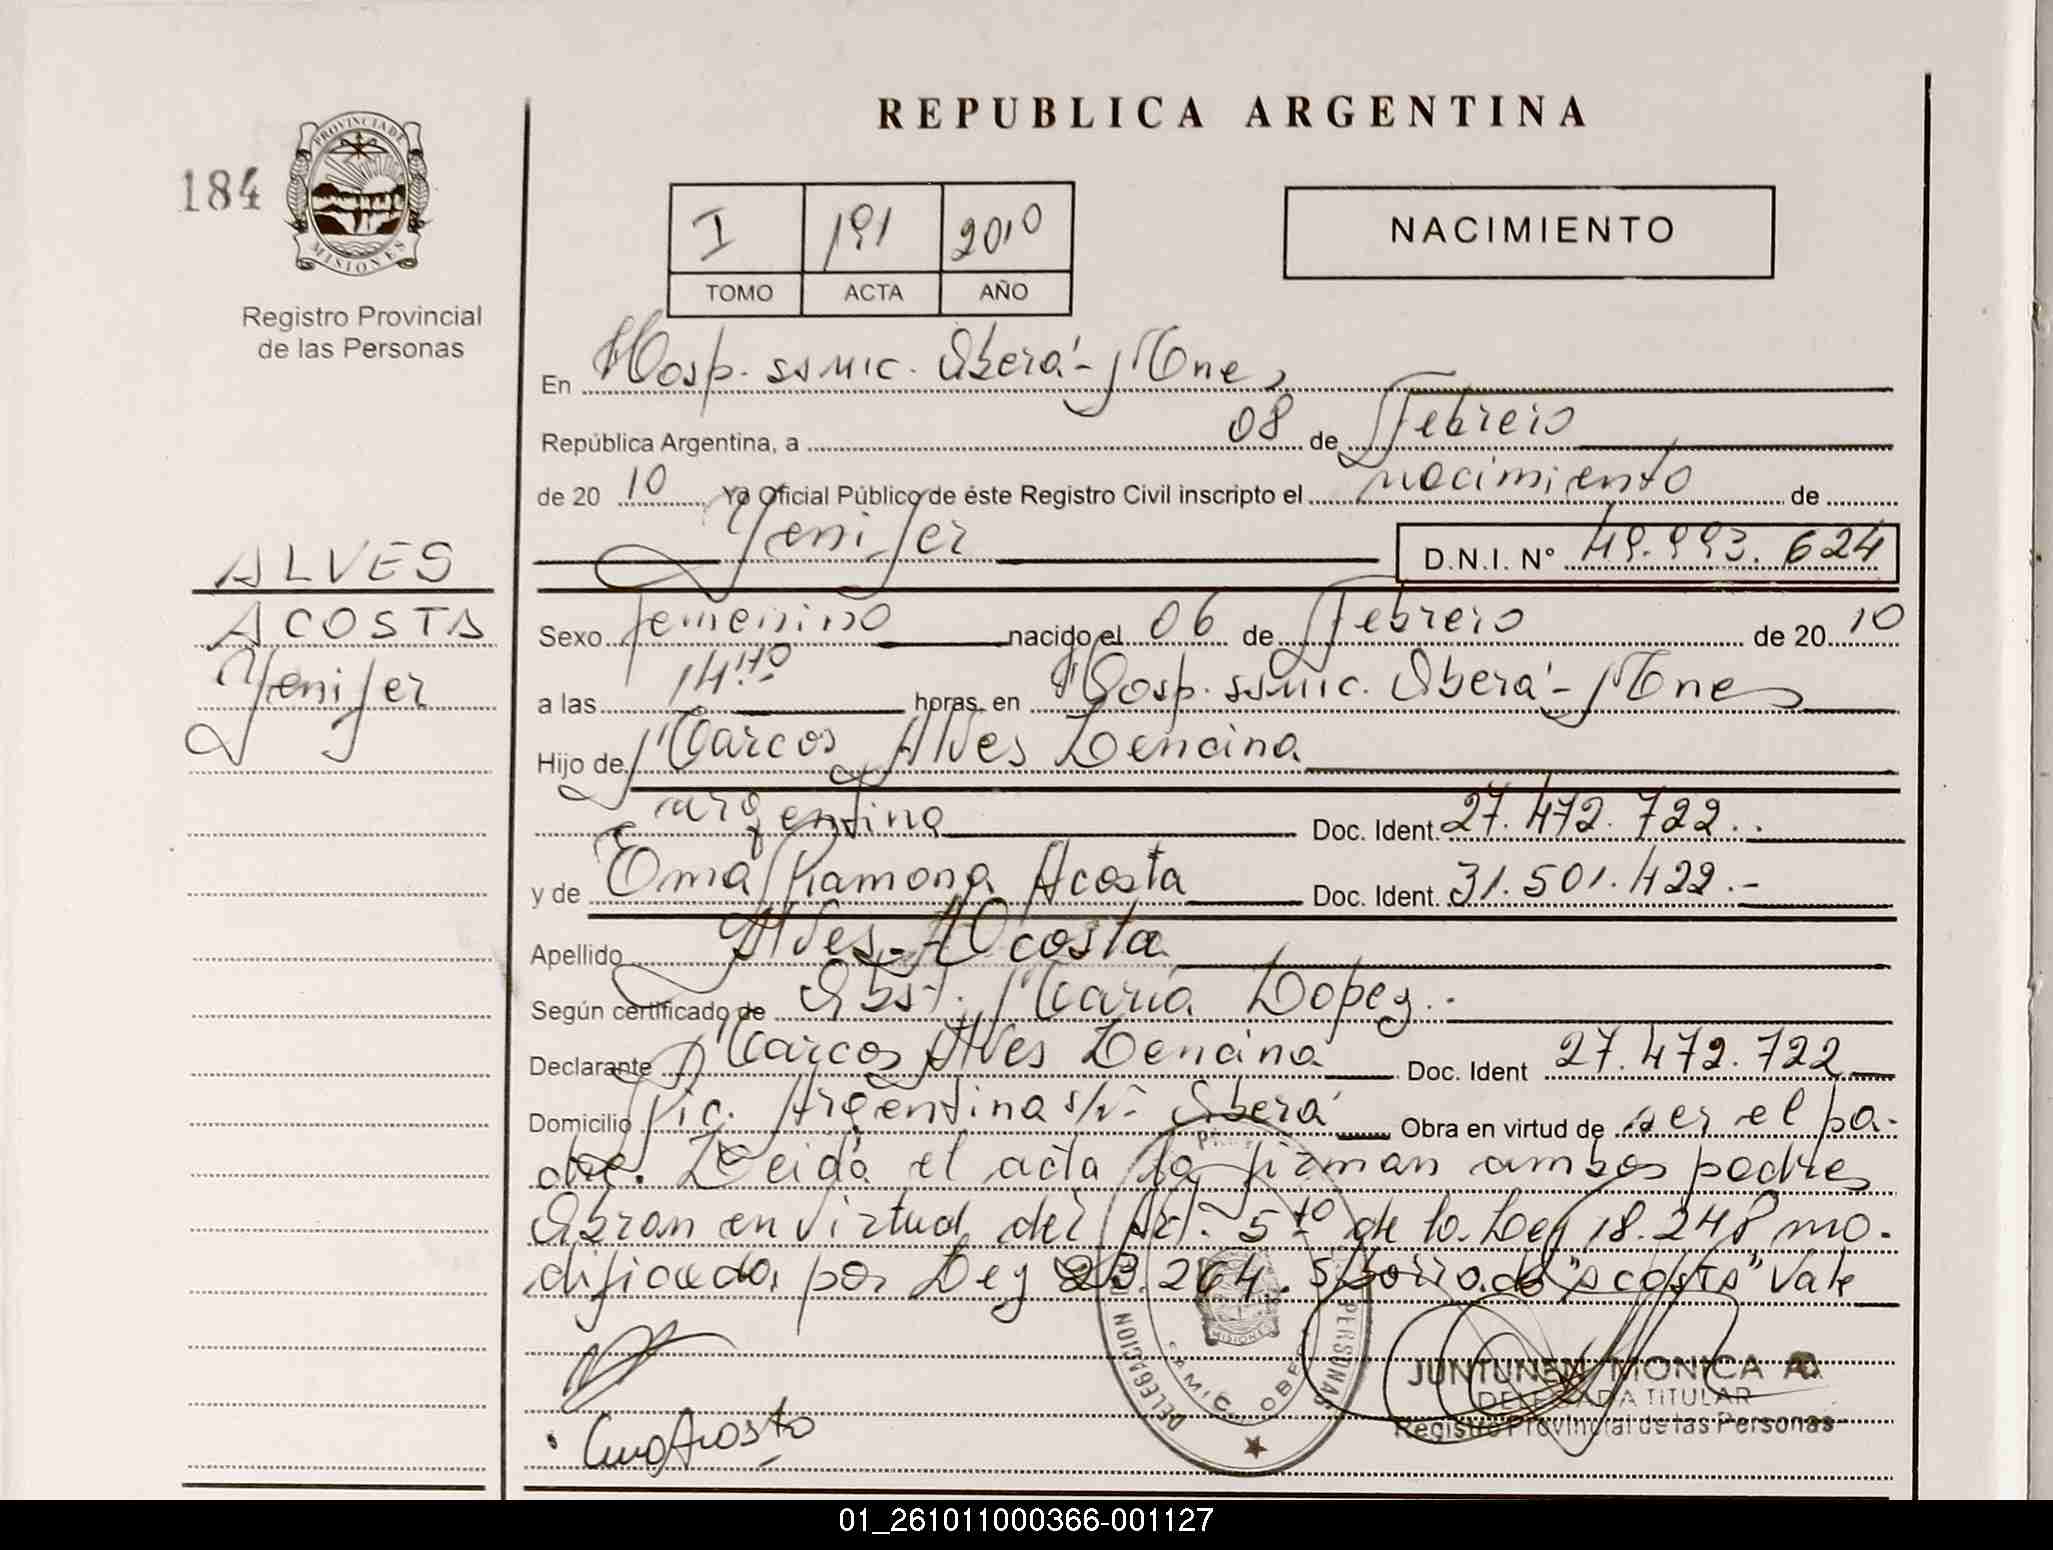 REPUBLICA ARGENTINA
184
PROVINCIA DE
MISIONES
Registro Provincial
de las Personas
I 191 2010
TOMO ACTA AÑO
NACIMIENTO
En Hosp. ssmic. Oberá - Mnes
República Argentina, a 08 de Febrero
de 20 10 Yo Oficial Público de éste Registro Civil inscripto el nacimiento de
Yenifer D.N.I. Nº 49.993.624
ALVES
ACOSTA
Yenifer
Sexo femenino nacido el 06 de Febrero de 20 10
a las 14:40 horas, en Hosp. ssmic. Oberá - Mnes
Hijo de Marcos Alves Lencina
argentino Doc. Ident. 27.472.722.
y de Ema Ramona Acosta Doc. Ident. 31.501.422.-
Apellido Alves - Acosta
Según certificado de Obst. Maria Lopez.
Declarante Marcos Alves Lencina Doc. Ident 27.472.722
Domicilio Pic. Argentina s/nº Oberá Obra en virtud de ser el pa-
dre. Leida el acta la firman ambos padres
Obran en virtud del Art. 5to de la Ley 18.248 mo-
dificada por Ley 23.264. S/borrado "ACOSTA" Vale
Ema Acosta
DELEGACION PERSONAS
MISIONES
JUNTUNEN MONICA A
DELEGADA TITULAR
Registro Provincial de las Personas
01_261011000366-001127